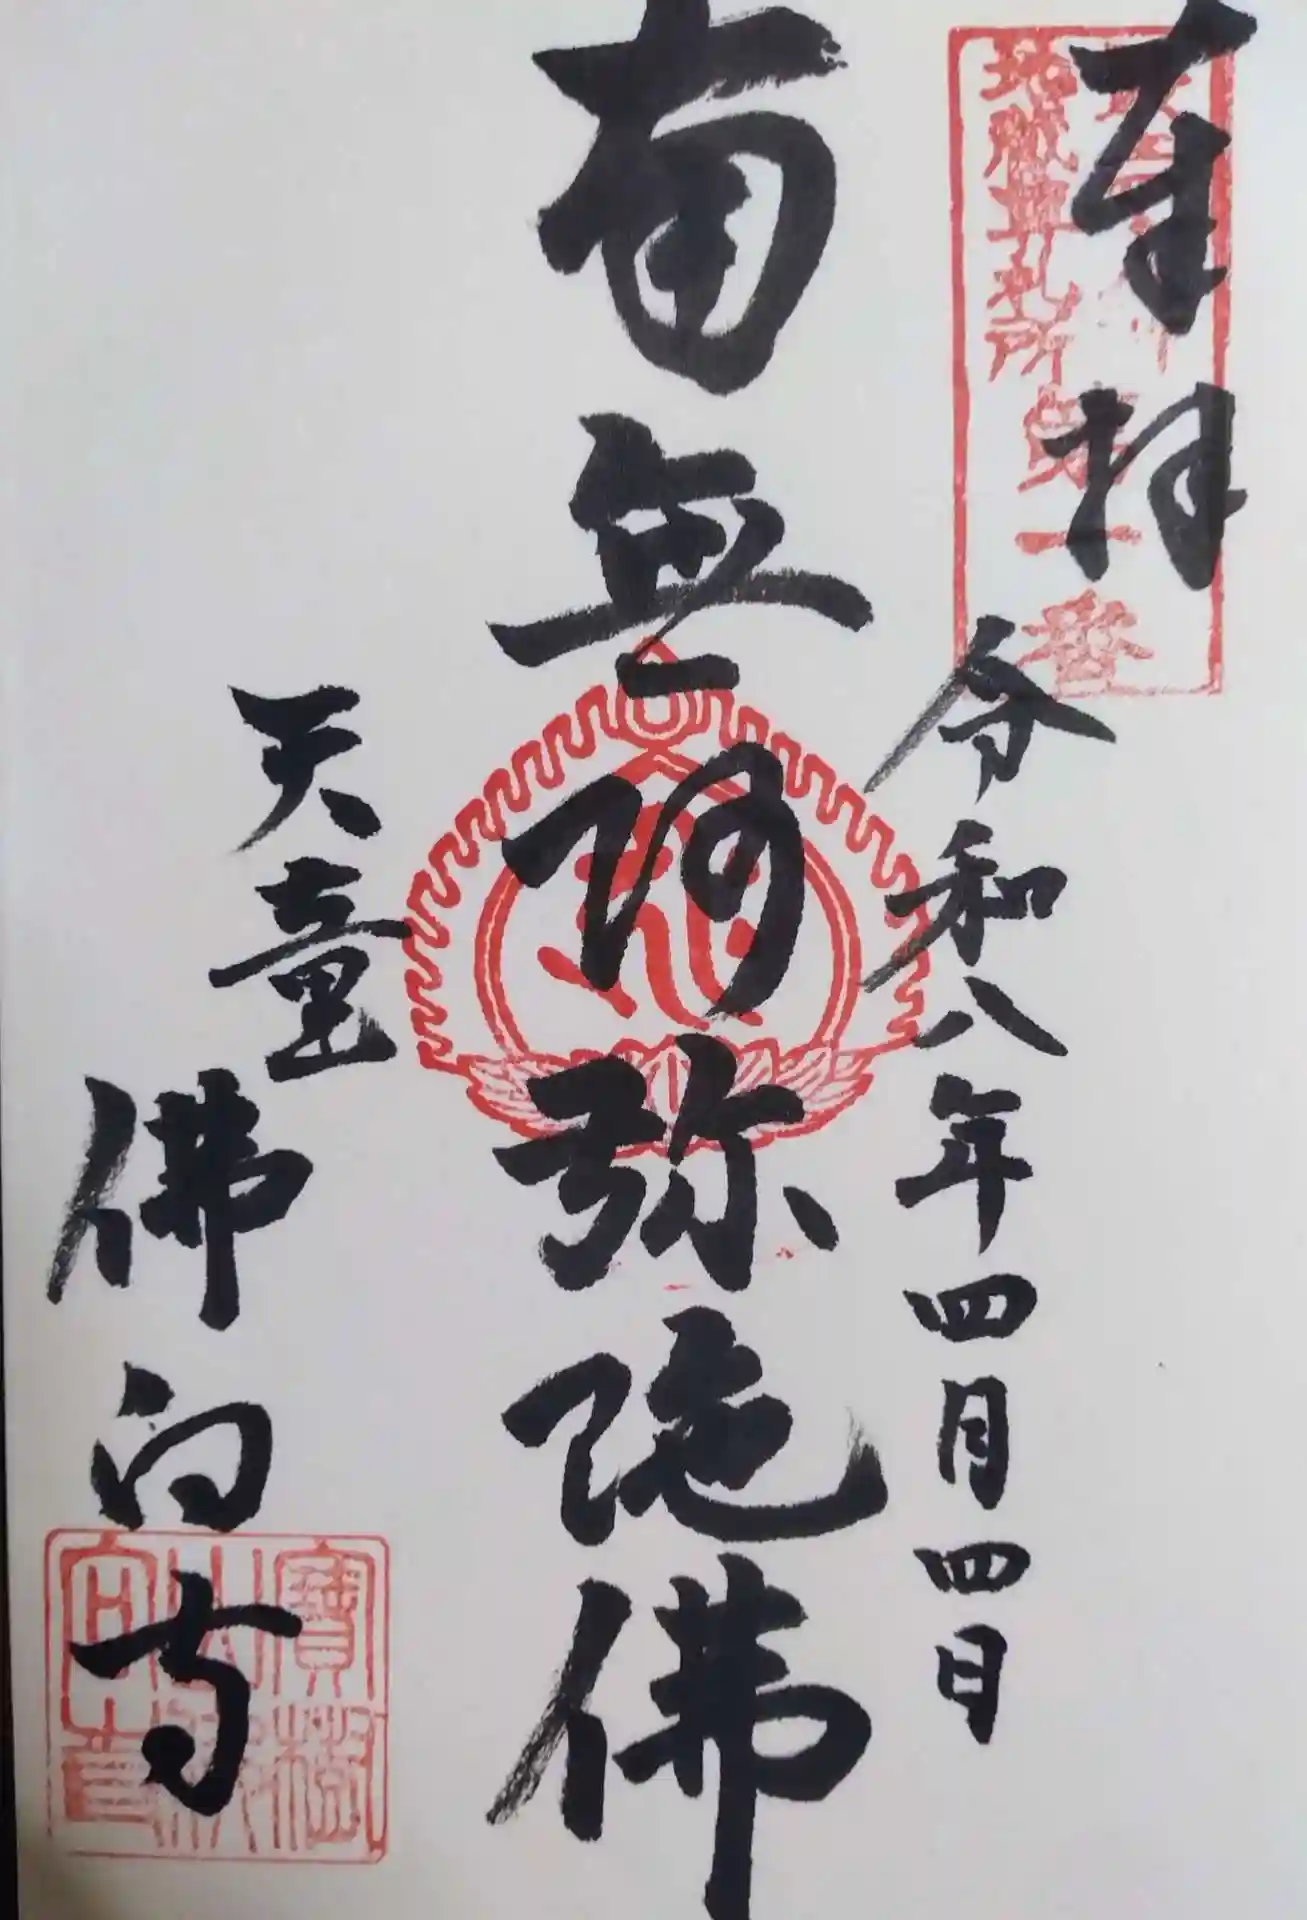 奉拝
地蔵尊札所
第一番
令和八年四月四日
南無阿弥陀佛
天童
佛向寺